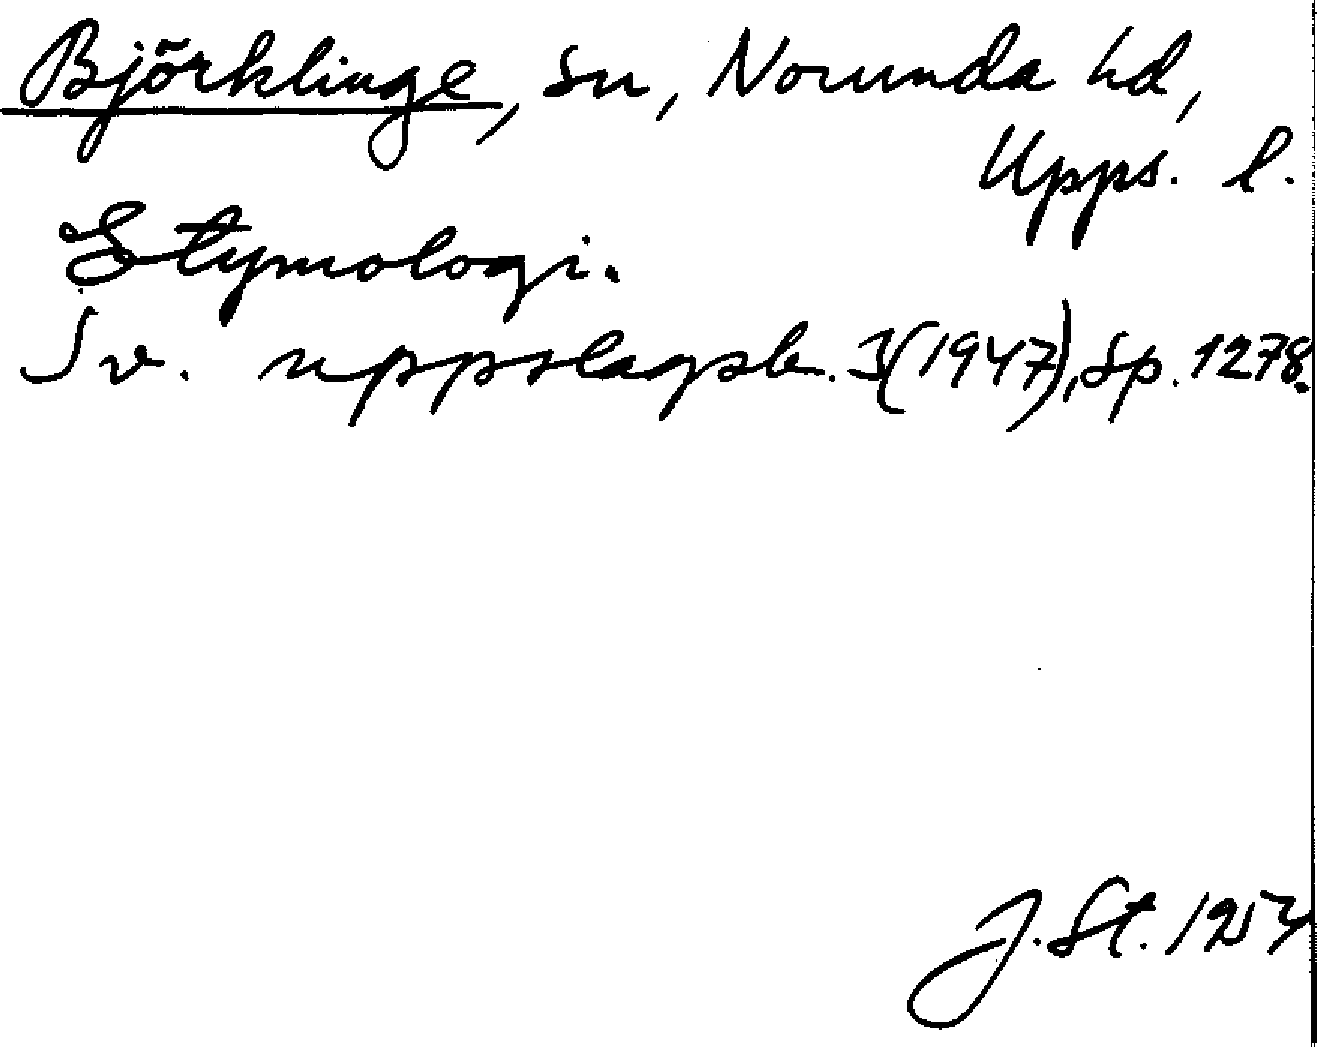 Björklinge, sn, Norunda hd,
Upps. l.
Etymologi.
Sv. uppslagsb. 3(1947), sp. 1278.
J. St. 1954